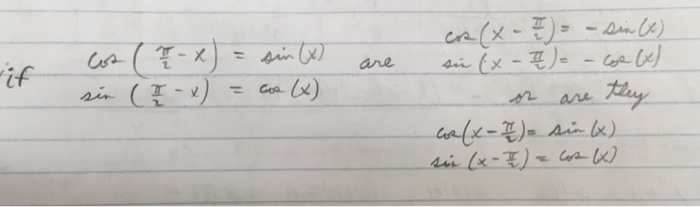 if
cos (π/2 - x) = sin(x)
sin (π/2 - x) = cos(x)
are
cos (x - π/2) = - sin(x)
sin (x - π/2) = - cos(x)
or are they
cos(x - π/2) = sin(x)
sin (x - π/2) = cos(x)